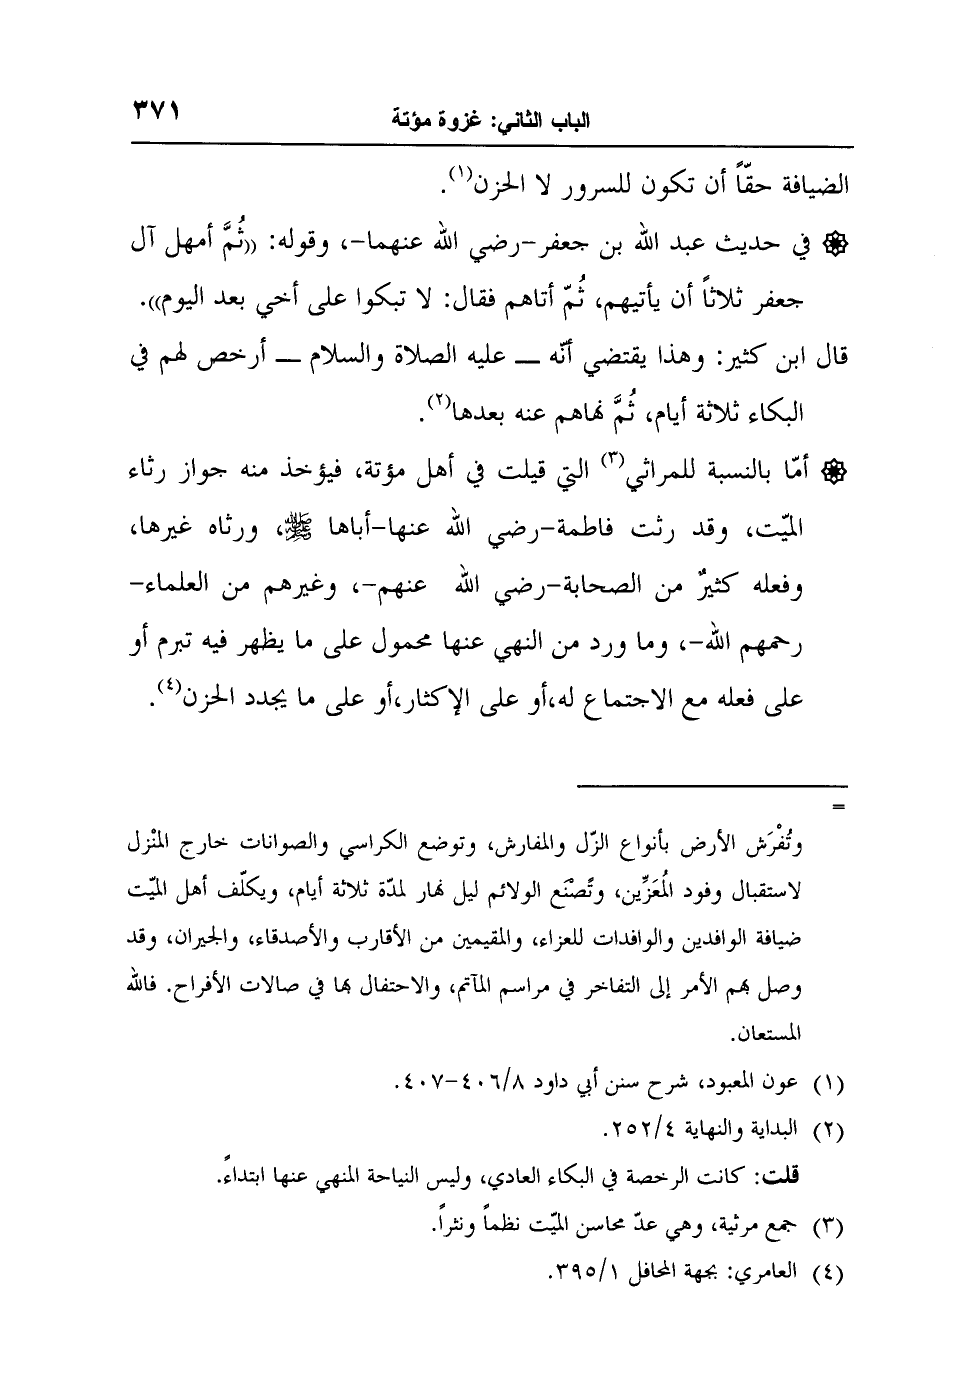 الباب الثاني: غزوة مؤتة ٣٧١
الضيافة حقّاً أن تكون للسرور لا الحزن(١).
في حديث عبد الله بن جعفر-رضي الله عنهما-، وقوله: ((ثُمَّ أمهل آل
جعفر ثلاثاً أن يأتيهم، ثُمّ أتاهم فقال: لا تبكوا على أخي بعد اليوم)).
قال ابن كثير: وهذا يقتضي أنّه ــ عليه الصلاة والسلام ــ أرخص لهم في
البكاء ثلاثة أيام، ثُمَّ نهاهم عنه بعدها(٢).
أمّا بالنسبة للمراثي(٣) التي قيلت في أهل مؤتة، فيؤخذ منه جواز رثاء
الميّت، وقد رثت فاطمة-رضي الله عنها-أباها ﷺ، ورثاه غيرها،
وفعله كثيرٌ من الصحابة-رضي الله عنهم-، وغيرهم من العلماء-
رحمهم الله-، وما ورد من النهي عنها محمول على ما يظهر فيه تبرم أو
على فعله مع الاجتماع له،أو على الإكثار،أو على ما يجدد الحزن(٤).
=
وتُفْرَش الأرض بأنواع الزّل والمفارش، وتوضع الكراسي والصوانات خارج المنْزل
لاستقبال وفود المُعَزِّين، وتًصْنَع الولائم ليل نهار لمدّة ثلاثة أيام، ويكلّف أهل الميّت
ضيافة الوافدين والوافدات للعزاء، والمقيمين من الأقارب والأصدقاء، والجيران، وقد
وصل بهم الأمر إلى التفاخر في مراسم المآتم، والاحتفال بها في صالات الأفراح. فالله
المستعان.
(١) عون المعبود، شرح سنن أبي داود ٤٠٦/٨-٤٠٧.
(٢) البداية والنهاية ٢٥٢/٤.
قلت: كانت الرخصة في البكاء العادي، وليس النياحة المنهي عنها ابتداءً.
(٣) جمع مرثية، وهي عدّ محاسن الميّت نظماً ونثراً.
(٤) العامري: بجهة المحافل ٣٩٥/١.